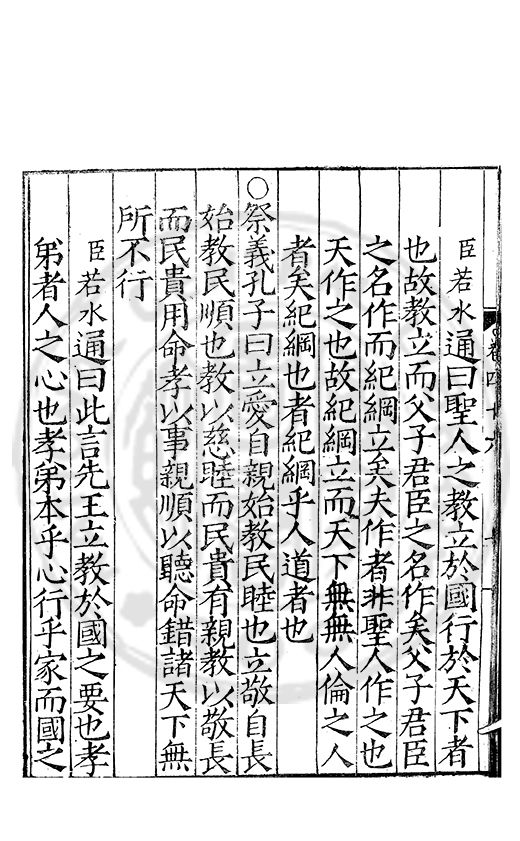 臣若水通曰聖人之教立於國行於天下者
也故教立而父子君臣之名作矣父子君臣
之名作而紀綱立矣夫作者非聖人作之也
天作之也故紀綱立而天下無無人倫之人
者矣紀綱也者紀綱乎人道者也
○祭義孔子曰立愛自親始教民睦也立敬自長
始教民順也教以慈睦而民貴有親教以敬長
而民貴用命孝以事親順以聽命錯諸天下無
所不行
臣若水通曰此言先王立教於國之要也孝
弟者人之心也孝弟本乎心行乎家而國之